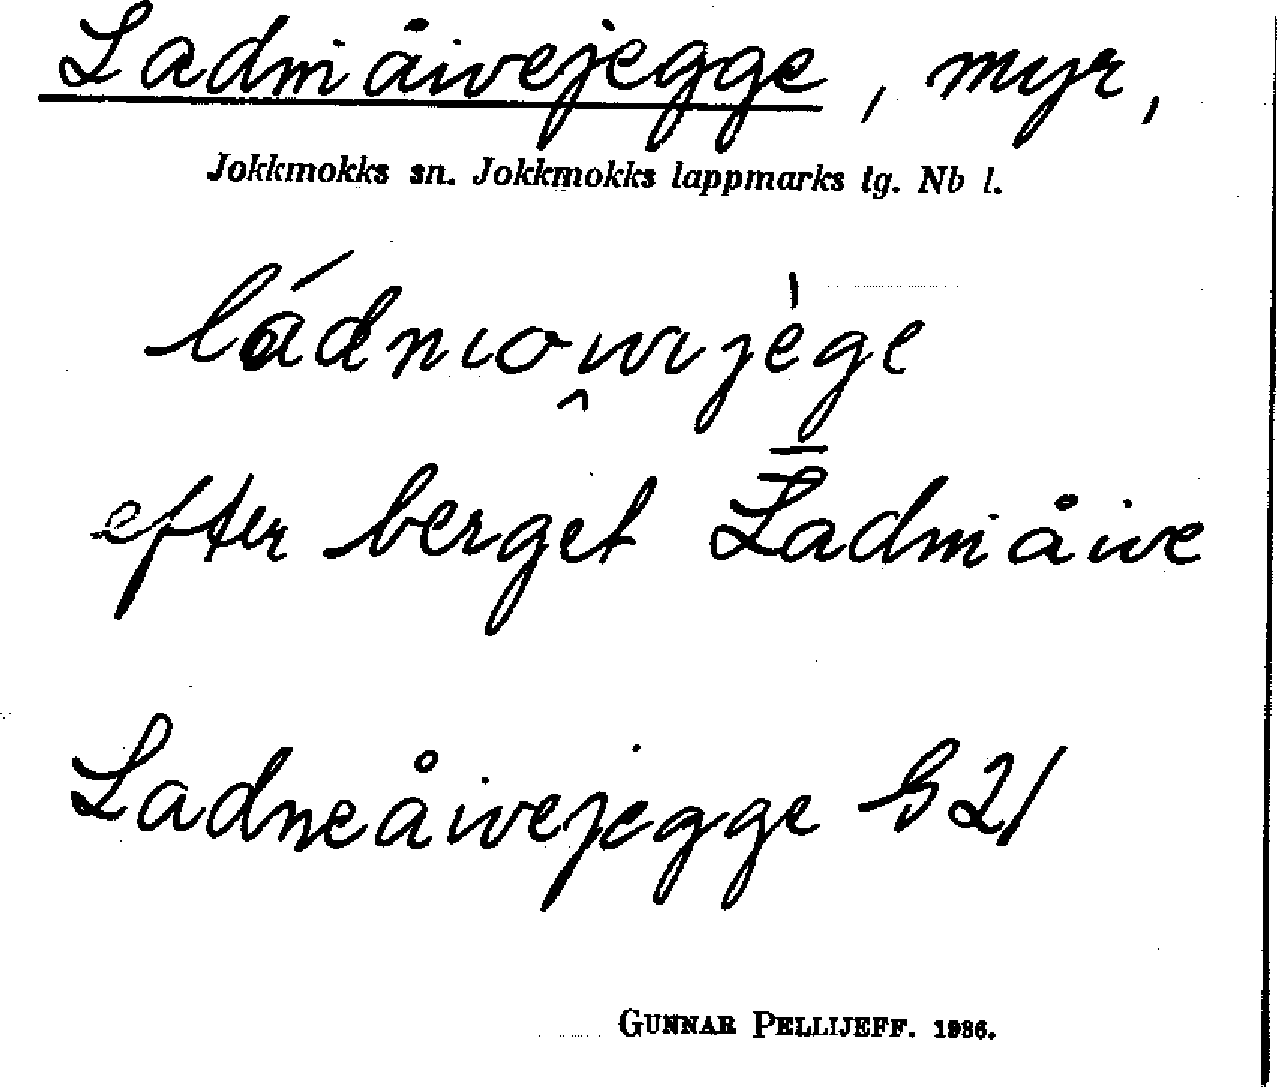 Ladniåivejegge, myr,
Jokkmokks sn. Jokkmokks lappmarks tg. Nb l.
efter berget Ladniåive
Ladneåivejegge G21
GUNNAR PELLIJEFF. 1986.